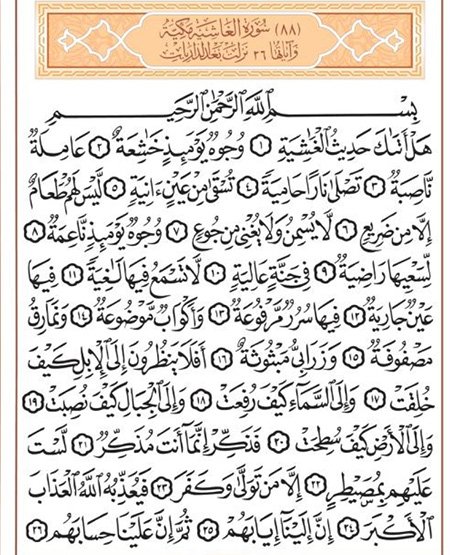 (٨٨) سُورَةُ الغَاشِيَةِ مَكِّيَّة
وَآيَاتُهَا ٢٦ نَزَلَتْ بَعْدَ الذَّارِيَات
بِسْمِ ٱللَّهِ ٱلرَّحْمَٰنِ ٱلرَّحِيمِ
هَلْ أَتَىٰكَ حَدِيثُ ٱلْغَٰشِيَةِ ١ وُجُوهٌ يَوْمَئِذٍ خَٰشِعَةٌ ٢ عَامِلَةٌ
نَّاصِبَةٌ ٣ تَصْلَىٰ نَارًا حَامِيَةً ٤ تُسْقَىٰ مِنْ عَيْنٍ ءَانِيَةٍ ٥ لَّيْسَ لَهُمْ طَعَامٌ
إِلَّا مِن ضَرِيعٍ ٦ لَّا يُسْمِنُ وَلَا يُغْنِى مِن جُوعٍ ٧ وُجُوهٌ يَوْمَئِذٍ نَّاعِمَةٌ ٨
لِّسَعْيِهَا رَاضِيَةٌ ٩ فِى جَنَّةٍ عَالِيَةٍ ١٠ لَّا تَسْمَعُ فِيهَا لَٰغِيَةً ١١ فِيهَا
عَيْنٌ جَارِيَةٌ ١٢ فِيهَا سُرُرٌ مَّرْفُوعَةٌ ١٣ وَأَكْوَابٌ مَّوْضُوعَةٌ ١٤ وَنَمَارِقُ
مَصْفُوفَةٌ ١٥ وَزَرَابِىُّ مَبْثُوثَةٌ ١٦ أَفَلَا يَنظُرُونَ إِلَى ٱلْإِبِلِ كَيْفَ
خُلِقَتْ ١٧ وَإِلَى ٱلسَّمَآءِ كَيْفَ رُفِعَتْ ١٨ وَإِلَى ٱلْجِبَالِ كَيْفَ نُصِبَتْ ١٩
وَإِلَى ٱلْأَرْضِ كَيْفَ سُطِحَتْ ٢٠ فَذَكِّرْ إِنَّمَآ أَنتَ مُذَكِّرٌ ٢١ لَّسْتَ
عَلَيْهِم بِمُصَيْطِرٍ ٢٢ إِلَّا مَن تَوَلَّىٰ وَكَفَرَ ٢٣ فَيُعَذِّبُهُ ٱللَّهُ ٱلْعَذَابَ
ٱلْأَكْبَرَ ٢٤ إِنَّ إِلَيْنَآ إِيَابَهُمْ ٢٥ ثُمَّ إِنَّ عَلَيْنَا حِسَابَهُم ٢٦